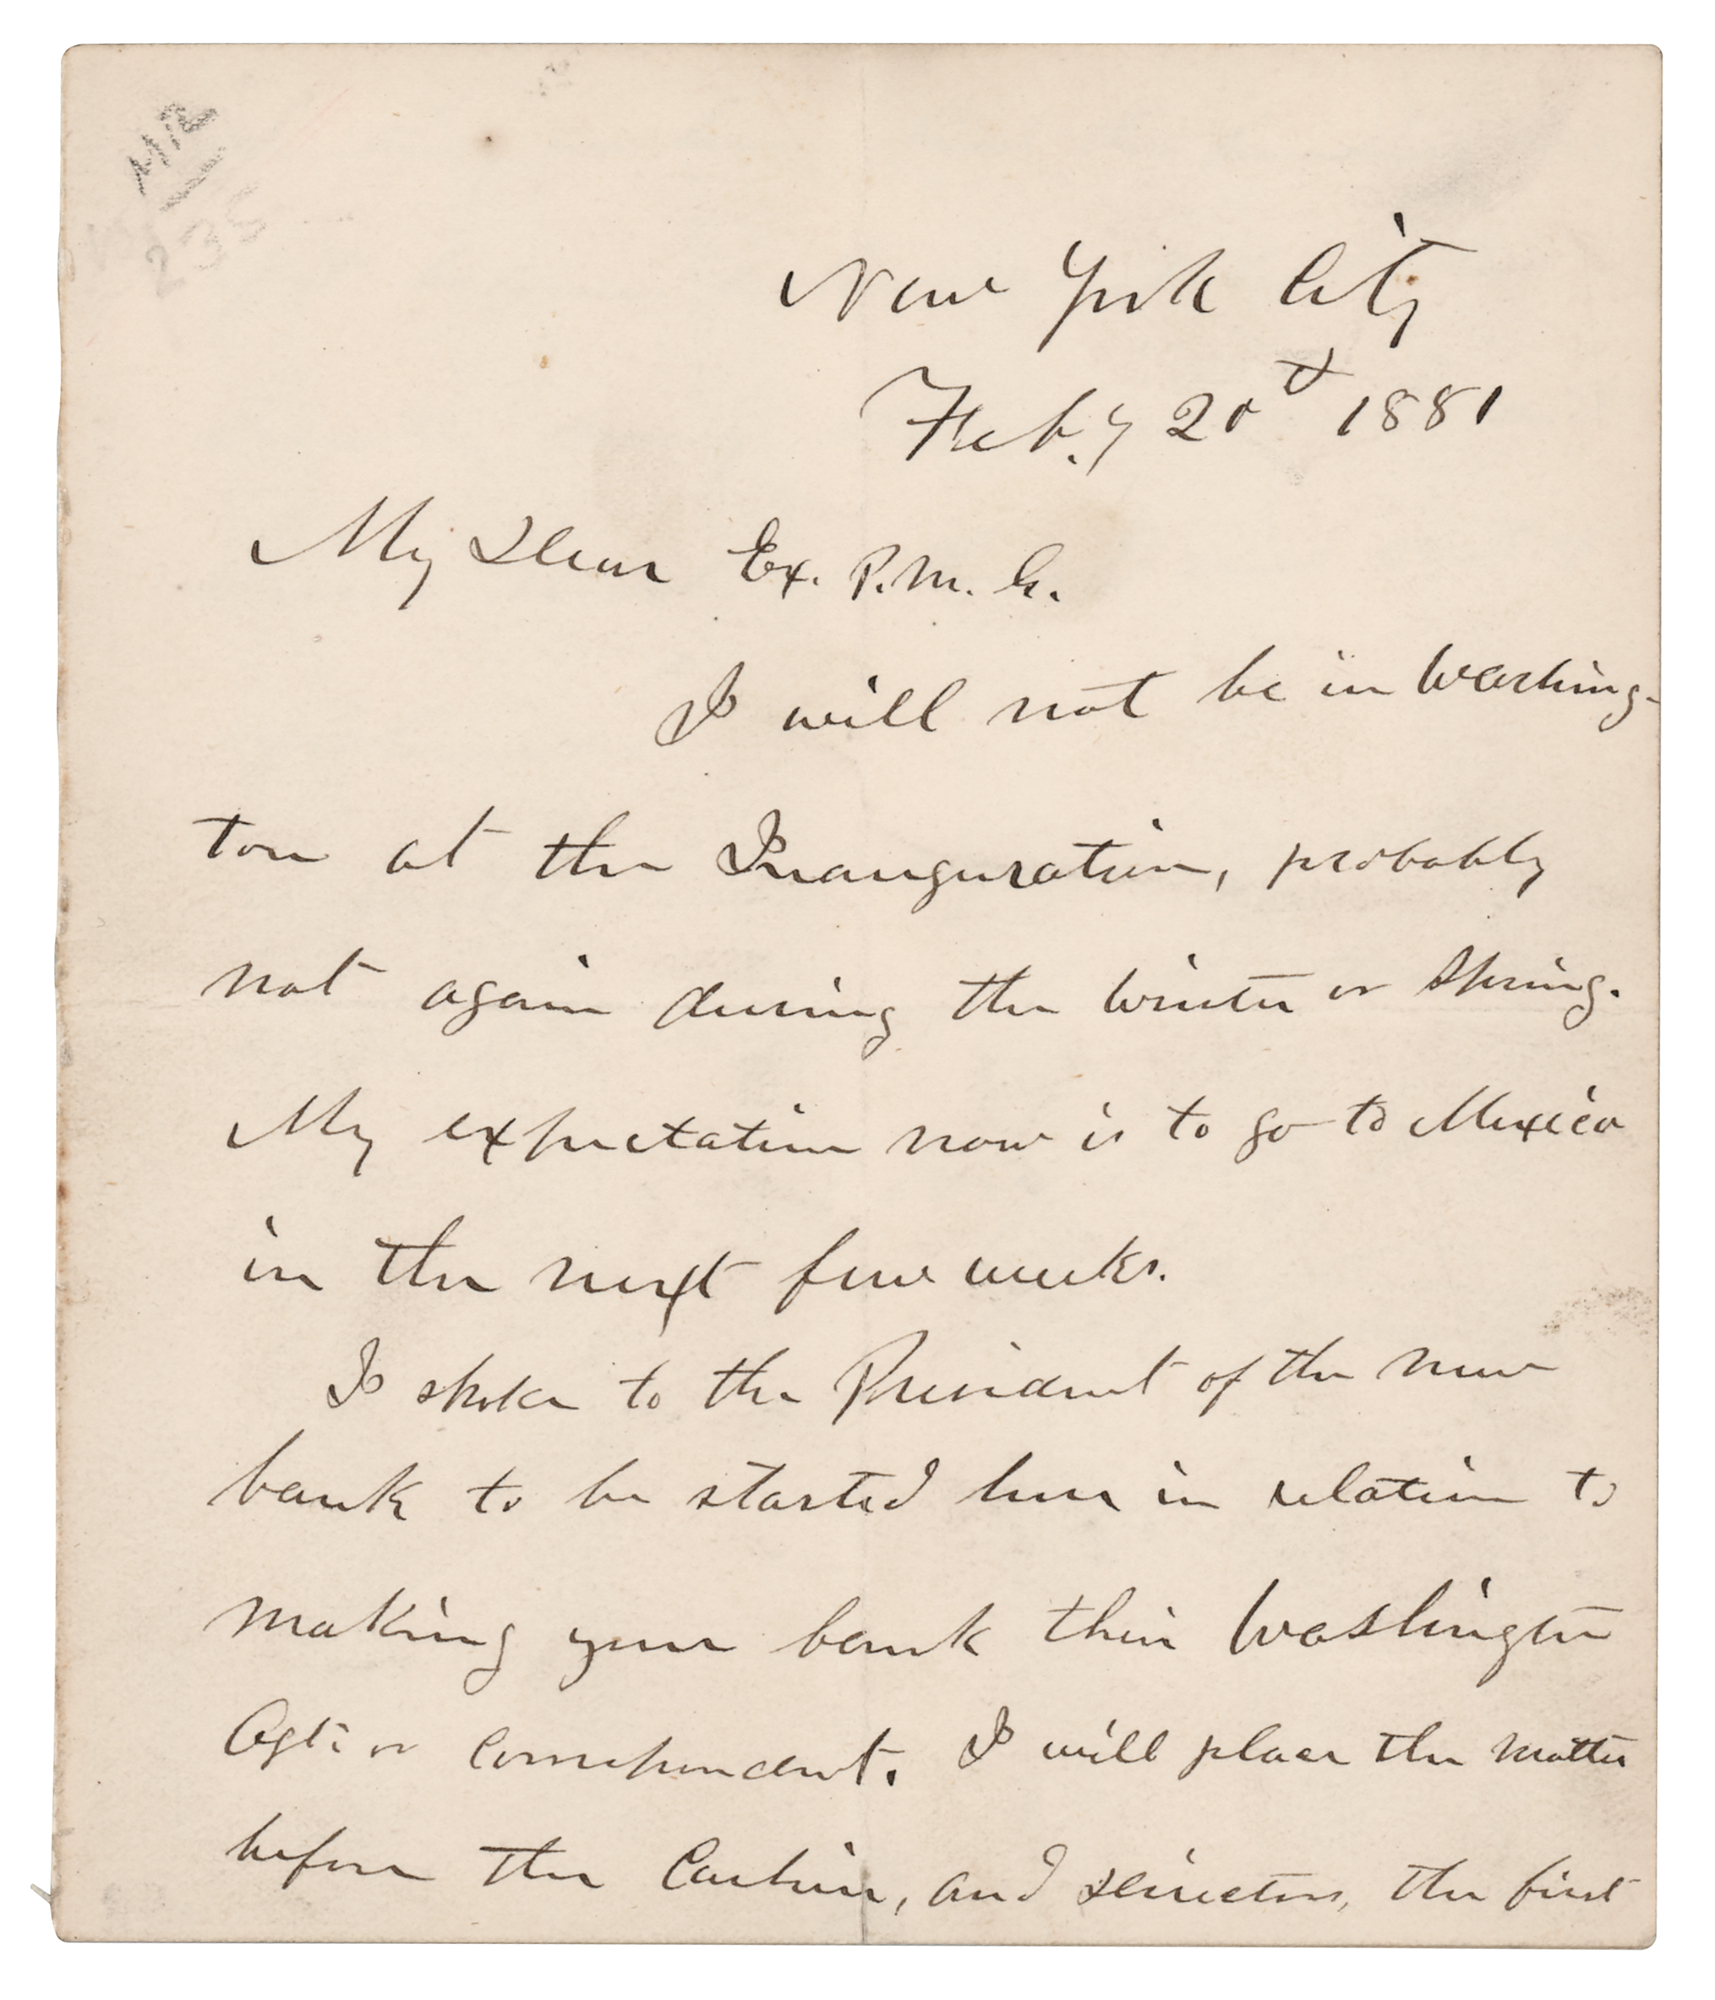 M12
235
New York City
Feb.y 20th 1881
My Dear Ex. P.M.G.
I will not be in Washing-
ton at the Inauguration, probably
not again during the Winter or Spring.
My expectation now is to go to Mexico
in the next few weeks.
I spoke to the President of the new
bank to be started here in relation to
making your bank their Washington
Agt. or Correspondent. I will place the matter
before the Cashier, and Directors, the first